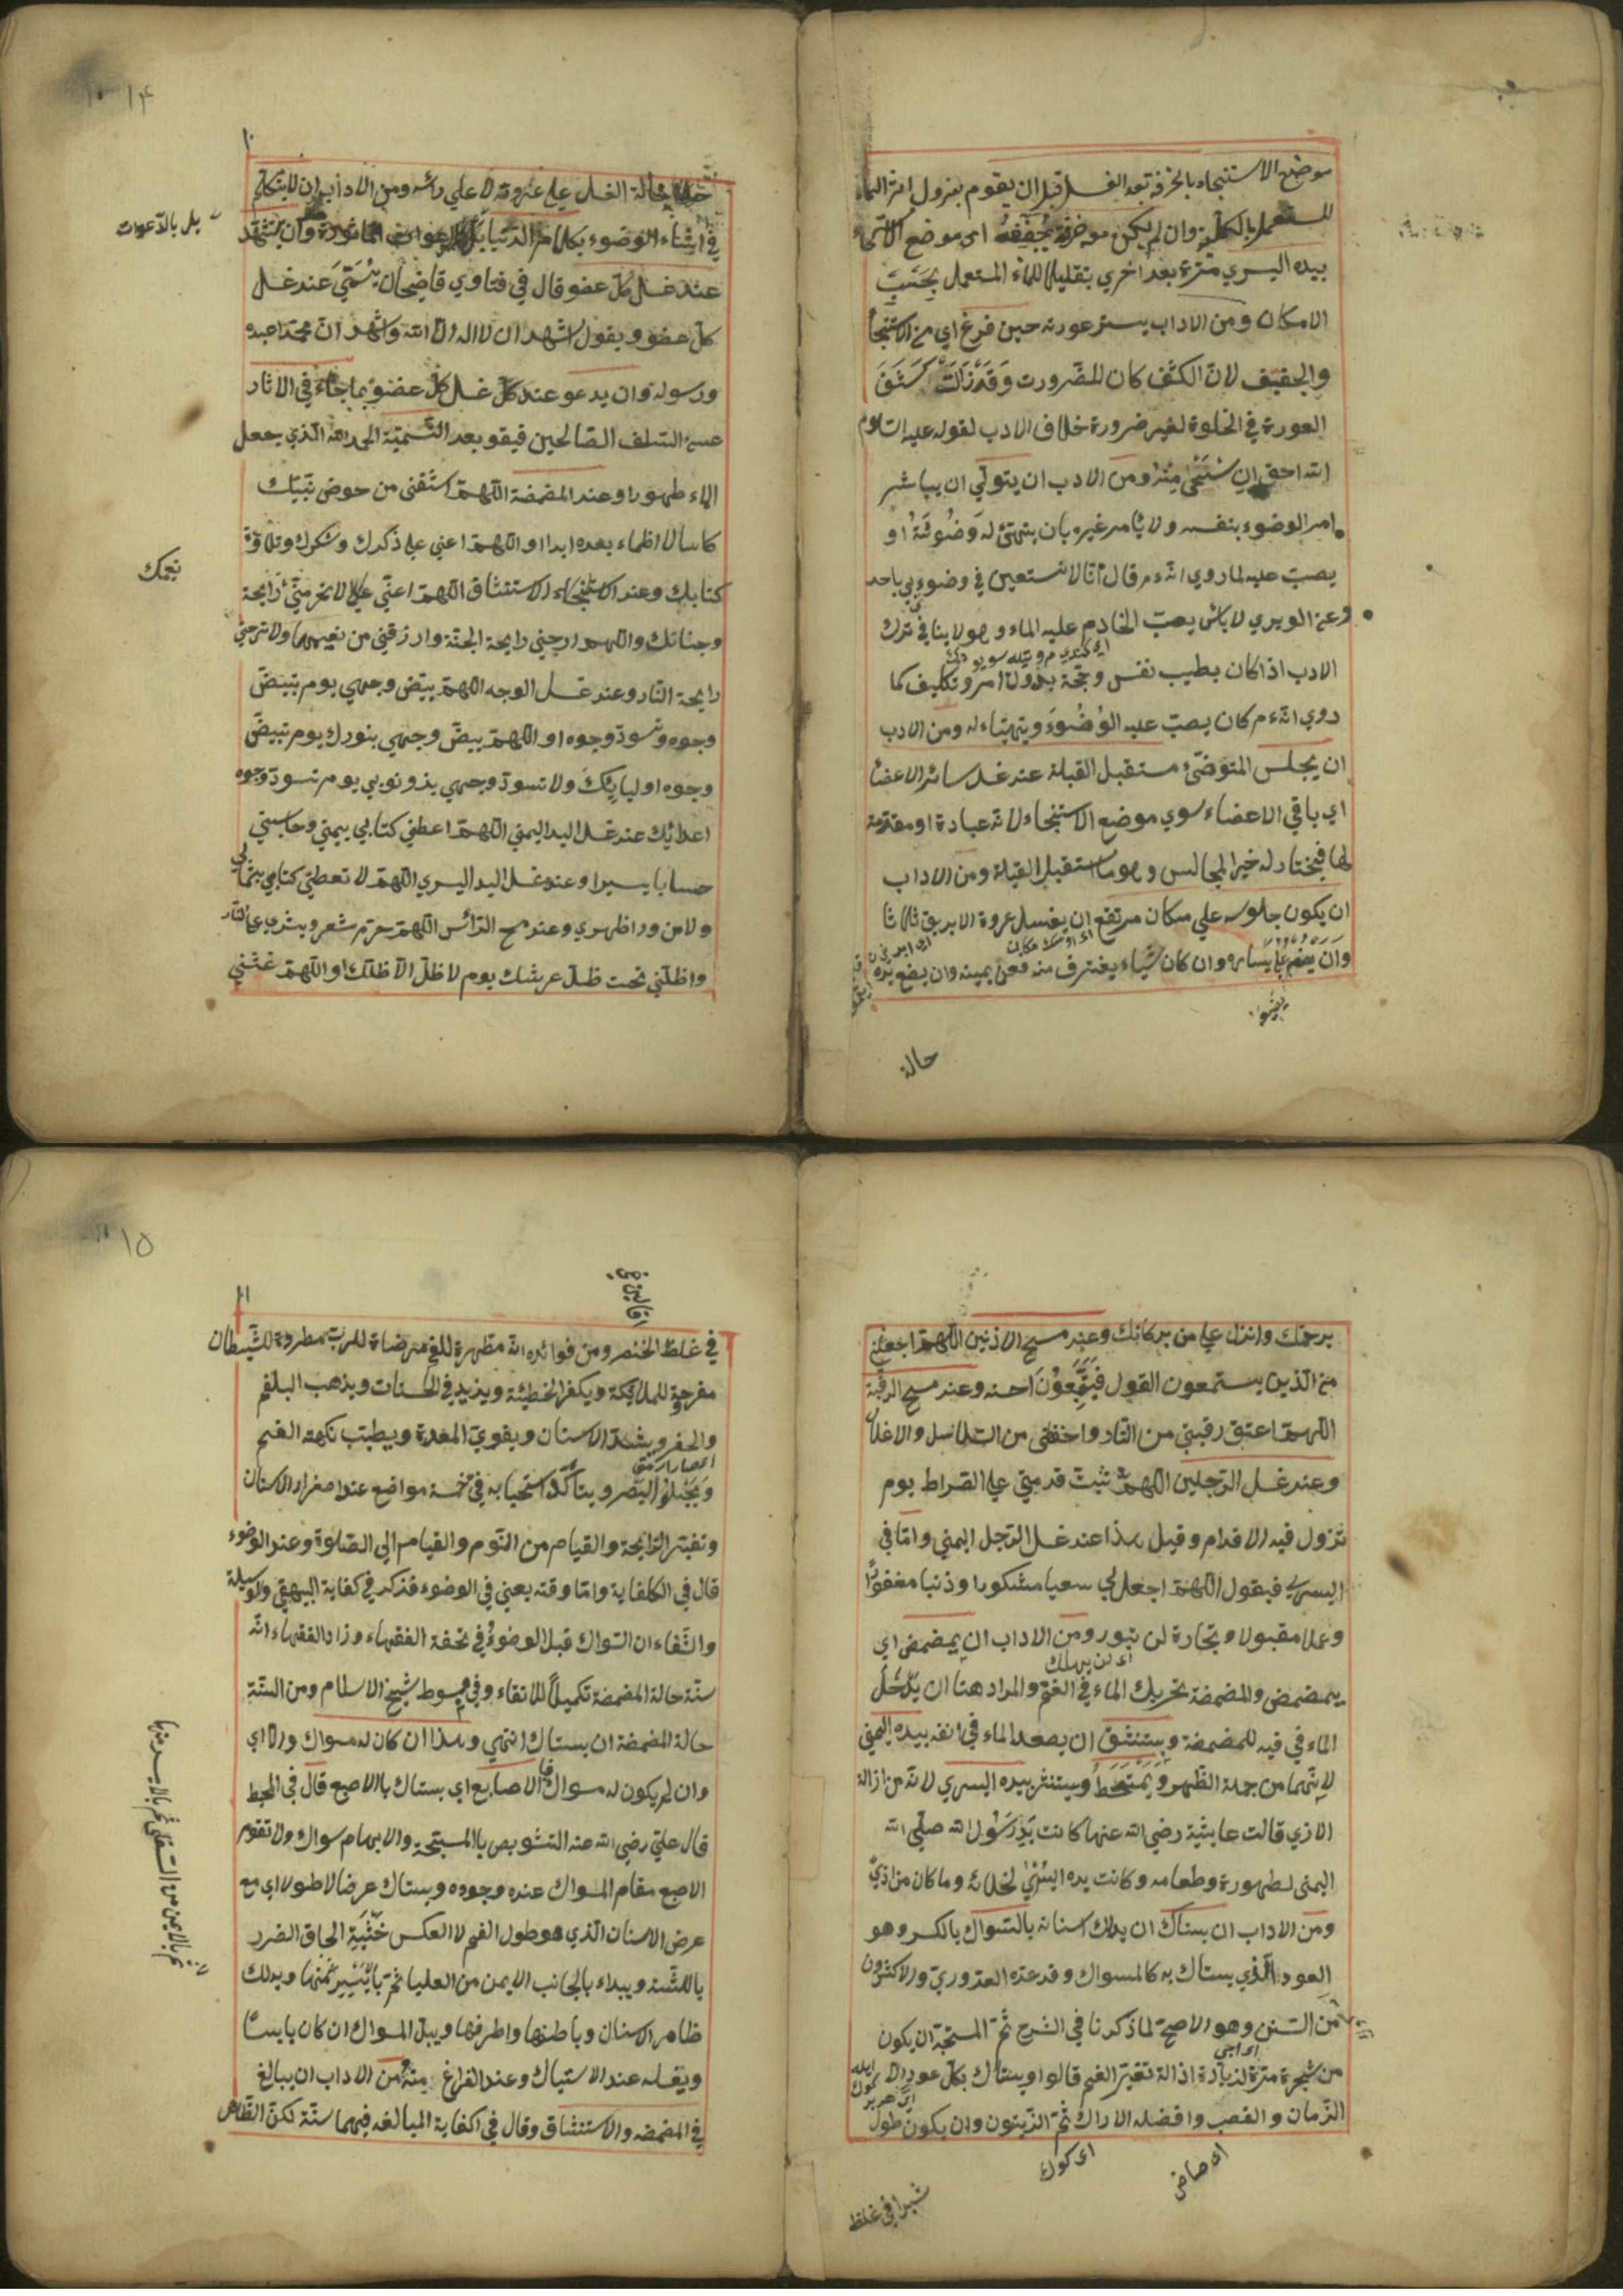 موضع الاستنجاء بالخرقة بعد الغسل قبل ان يقوم ليزول اثر الماء
المستعمل بالكلية وان لم يكن معه خرقة يجففه اى موضع الاستنجاء
بيده اليسري مرة بعد اخري تقليلا للماء المستعمل بحسب
الامكان ومن الاداب يستر عورته حين فرغ اي من الاستنجا
والجفيف لان الكشف كان للضرورت وقد زالت كشف
العورة في الخلوة لغير ضرورة خلاف الادب لقوله عليه السلام
الله احق ان يستحى منه ومن الادب ان يتولي ان يباشر
امر الوضوء بنفسه ولا يأمر غيره بان يتهيئ له وضوئه او
يصب عليه لما روي انه ءم قال انا لا نستعين في وضوءي باحد
وعن الوبري لا بأس بصب الخادم عليه الماء وهو لا ينافي ترك
الادب اذا كان بطيب نفس ومحبة بدون امر وتكليف كما
روي انه ءم كان يصب عليه الوضوء ويتهيئاء له ومن الادب
ان يجلس المتوضئ مستقبل القبلة عند غسل سائر الاعضا
اي باقي الاعضاء سوي موضع الاستنجاء لانه عبادة او مقدمة
لها فيختار له خير المجالس وهو ما استقبل القبلة ومن الاداب
ان يكون جلوسه علي مكان مرتفع ان يغسل عروة الابريق ثلاثا
وان يضعه علي يساره وان كان شياء يغترف منه فعن يمينه وان يضع يده
حالة
١٤
١٠
حالة الغسل علي عروته لا علي رأسه ومن الاداب ان لا يتكلم
في اثناء الوضوء بكلام الدنيا بل المأثورة وان يتشهد
بل بالدعوات
عند غسل كل عضو قال في فتاوي قاضيحان يسمي عند غسل
كل عضو ويقول اشهد ان لا اله الا الله واشهد ان محمدا عبده
ورسوله وان يدعو عند كل غسل كل عضو بما جاء في الاثار
عن السلف الصالحين فيقو بعد التسمية الحمد لله الذي جعل
الماء طهورا وعند المضمضة اللهم اسقني من حوض نبيك
كاسا لا اظماء بعده ابدا او اللهم اعني علي ذكرك وشكرك وتلاوة
كتابك وعند الاستنشاق اللهم لا تحرمني رايحة
نعيمك
وجنانك واللهم ارحني رايحة الجنة وارزقني من نعيمها ولا ترحني
رايحة النار وعند غسل الوجه اللهم بيض وجهي يوم تبيض
وجوه وتسود وجوه او اللهم بيض وجهي بنورك يوم تبيض
وجوه اوليايك ولا تسود وجهي بذنوبي يوم تسود وجوه
اعدائك عند غسل اليد اليمني اللهم اعطني كتابي بيميني وحاسبني
حسابا يسيرا وعند غسل اليد اليسري اللهم لا تعطني كتابي بشمالي
ولا من ورا ظهري وعند مسح الرأس اللهم حرم شعر وبشري علي النار
واظلني تحت ظل عرشك يوم لا ظل الا ظلك او اللهم غشني
برحمتك وانزل علي من بركاتك وعند مسح الاذنين اللهم اجعلني
من الذين يستمعون القول فيتبعون احسنه وعند مسح الرقبة
اللهم اعتق رقبتي من النار واحفظني من السلاسل والاغلال
وعند غسل الرجلين اللهم ثبت قدمتي علي الصراط يوم
تزول فيه الاقدام وقيل هذا عند غسل الرجل اليمني واما في
اليسري فيقول اللهم اجعل لي سعيا مشكورا وذنبا مغفورا
وعملا مقبولا وتجارة لن تبور ومن الاداب ان يمضمض اي
اى لن يهلك
يمضمض والمضمضة تحريك الماء في الفم والمراد هنا ان يدخل
الماء في فيه للمضمضة ويستنشق ان يصعد الماء في انفه بيده اليمني
لانهما من جملة الطهور ويمتخط ويستنثر بيده اليسري لانه من ازالة
الاذي قالت عايشة رضي الله عنها كانت يد رسول الله صلي الله
اليمنى لطهورة وطعامه وكانت يده اليسري لخلائه وما كان من اذي
ومن الاداب ان يستاك ان يدلك اسنانه بالسواك بالكسر وهو
العود الذي يستاك به كالمسواك وقد عده القدوري والاكثرون
من السنن وهو الاصح لما ذكرنا في الشرح ثم المستحب ان يكون
من شجرة مرة لزيادة ازالة تغير الفم قالوا ويستاك بكل عود الا
الرمان والقصب وافضله الاراك ثم الزيتون وان يكون طول
شبرا في غلظ
١٥
١١
في غلظ الخنصر ومن فوائده انه مطهرة للفم مرضاة للرب مطردة للشيطان
مفرجة للملائكة ويكفر الخطيئة ويزيد في الحسنات ويذهب البلغم
والحفر ويشد الاسنان ويقوي المعدة ويطيب نكهة الفم
ويجلو البصر ويتأكد استحبابه في خمسة مواضع عند اصفرار الاسنان
وتغير الرايحة والقيام من النوم والقيام الي الصلوة وعند الوضوء
قال في الكفاية واما وقته يعني في الوضوء فذكر في كفاية البيهقي والوسيلة
والشفاء ان السواك قبل الوضوء في تحفة الفقهاء وزاد الفقهاء انه
سنة حالة المضمضة تكميلا للانقاء وفي مبسوط شيخ الاسلام ومن السنة
حالة المضمضة ان يستاك انتهي وهذا ان كان له سواك والا اي
وان لم يكون له مسواك فالاصابع اي يستاك بالاصبع قال في المحيط
قال علي رضي الله عنه التشويص بالمسبحة والابهام سواك ولا تقوم
الاصبع مقام المسواك عنده وجوده ويستاك عرضا لا طولا اي مع
عرض الاسنان الذي هو طول الفم لا العكس خشية الحاق الضرر
باللثة ويبداء بالجانب الايمن من العليا ثم بالايسر منها ويدلك
ثم بالايمن من السفلي ثم بالايسر منها
ظاهر الاسنان وباطنها واطرفها ويبل المسواك ان كان يابسا
ويغسله عند الاستياك وعند الفراغ منه ومن الاداب ان يبالغ
في المضمضه والاستنشاق وقال في اكفاية المبالغه فيهما سنة لكن الظاهر